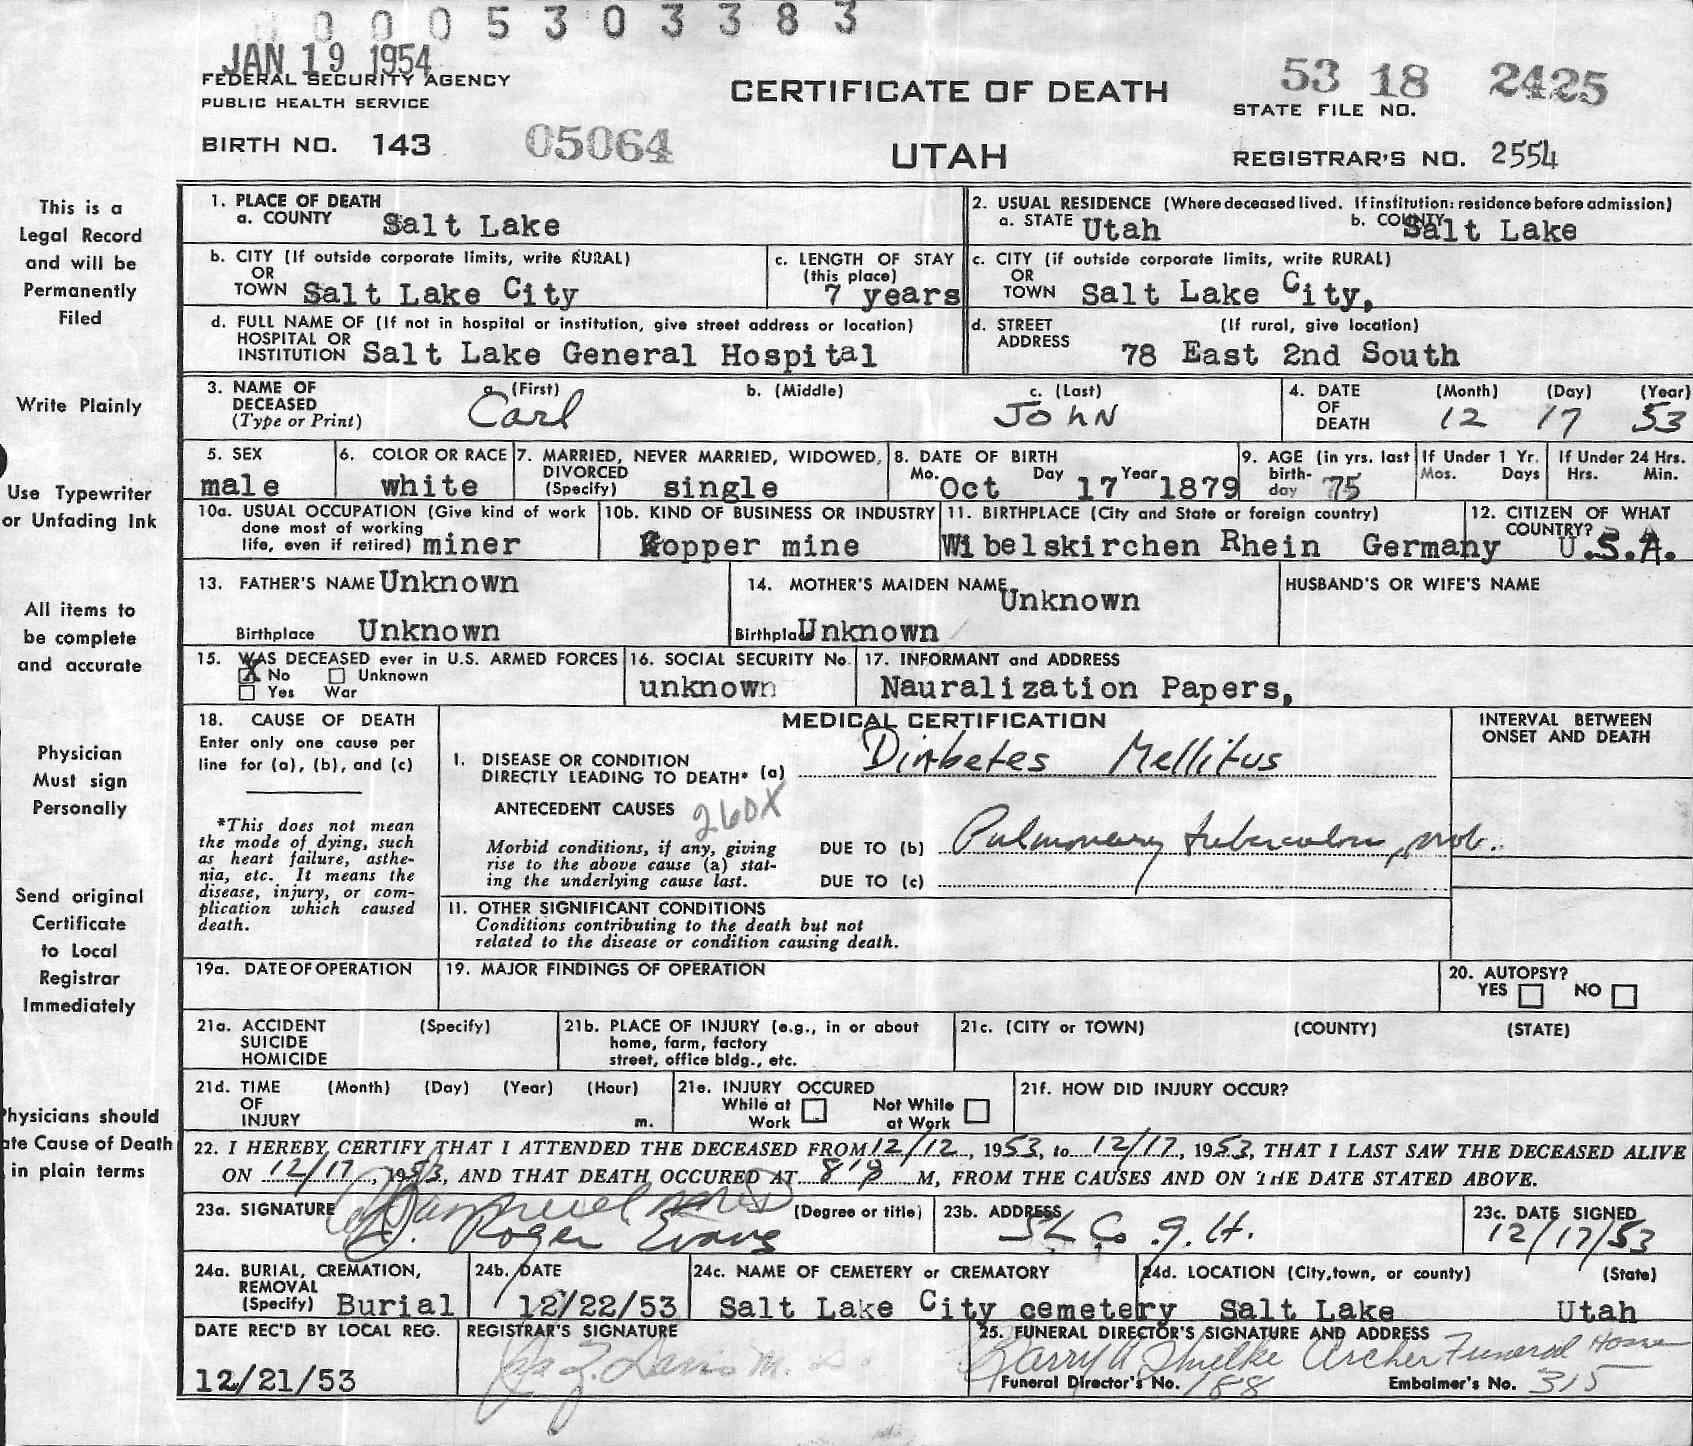 0 0 0 5 3 0 3 3 8 3
JAN 19 1954
FEDERAL SECURITY AGENCY
PUBLIC HEALTH SERVICE
BIRTH NO. 143 05064
CERTIFICATE OF DEATH
UTAH
53 18 2425
STATE FILE NO.
REGISTRAR'S NO. 2554
This is a
Legal Record
and will be
Permanently
Filed
Write Plainly
Use Typewriter
or Unfading Ink
All items to
be complete
and accurate
Physician
Must sign
Personally
Send original
Certificate
to Local
Registrar
Immediately
hysicians should
te Cause of Death
in plain terms
1. PLACE OF DEATH
a. COUNTY Salt Lake
2. USUAL RESIDENCE (Where deceased lived. If institution: residence before admission)
a. STATE Utah b. COUNTY Salt Lake
b. CITY (If outside corporate limits, write RURAL)
OR
TOWN Salt Lake City
c. LENGTH OF STAY
(this place)
7 years
c. CITY (if outside corporate limits, write RURAL)
OR
TOWN Salt Lake City,
d. FULL NAME OF (If not in hospital or institution, give street address or location)
HOSPITAL OR
INSTITUTION Salt Lake General Hospital
d. STREET (If rural, give location)
ADDRESS 78 East 2nd South
3. NAME OF
DECEASED
(Type or Print)
a. (First) b. (Middle) c. (Last)
Carl JOHN
4. DATE (Month) (Day) (Year)
OF
DEATH 12 17 53
5. SEX
male
6. COLOR OR RACE
white
7. MARRIED, NEVER MARRIED, WIDOWED,
DIVORCED
(Specify) single
8. DATE OF BIRTH
Mo. Oct Day 17 Year 1879
9. AGE (in yrs. last
birth-
day 75
If Under 1 Yr.
Mos. Days
If Under 24 Hrs.
Hrs. Min.
10a. USUAL OCCUPATION (Give kind of work
done most of working
life, even if retired) miner
10b. KIND OF BUSINESS OR INDUSTRY
Kopper mine
11. BIRTHPLACE (City and State or foreign country)
Wibelskirchen Rhein Germany
12. CITIZEN OF WHAT
COUNTRY?
U.S.A.
13. FATHER'S NAME Unknown
Birthplace Unknown
14. MOTHER'S MAIDEN NAME
Unknown
Birthpla Unknown
HUSBAND'S OR WIFE'S NAME
15. WAS DECEASED ever in U.S. ARMED FORCES
X No Unknown
Yes War
16. SOCIAL SECURITY No.
unknown
17. INFORMANT and ADDRESS
Nauralization Papers,
18. CAUSE OF DEATH
Enter only one cause per
line for (a), (b), and (c)
*This does not mean
the mode of dying, such
as heart failure, asthe-
nia, etc. It means the
disease, injury, or com-
plication which caused
death.
MEDICAL CERTIFICATION
I. DISEASE OR CONDITION
DIRECTLY LEADING TO DEATH* (a) Diabetes Mellitus
ANTECEDENT CAUSES 260X
Morbid conditions, if any, giving
rise to the above cause (a) stat-
ing the underlying cause last.
DUE TO (b) Pulmonary tuberculosis, prob.
DUE TO (c)
11. OTHER SIGNIFICANT CONDITIONS
Conditions contributing to the death but not
related to the disease or condition causing death.
INTERVAL BETWEEN
ONSET AND DEATH
19a. DATE OF OPERATION
19. MAJOR FINDINGS OF OPERATION
20. AUTOPSY?
YES NO
21a. ACCIDENT (Specify)
SUICIDE
HOMICIDE
21b. PLACE OF INJURY (e.g., in or about
home, farm, factory
street, office bldg., etc.
21c. (CITY or TOWN) (COUNTY) (STATE)
21d. TIME (Month) (Day) (Year) (Hour)
OF
INJURY m.
21e. INJURY OCCURED
While at Not While
Work at Work
21f. HOW DID INJURY OCCUR?
22. I HEREBY CERTIFY THAT I ATTENDED THE DECEASED FROM 12/12, 1953, to 12/17, 1953, THAT I LAST SAW THE DECEASED ALIVE
ON 12/17, 1953, AND THAT DEATH OCCURED AT M, FROM THE CAUSES AND ON THE DATE STATED ABOVE.
23a. SIGNATURE (Degree or title)
Roger Evans
23b. ADDRESS
SL Co. G.H.
23c. DATE SIGNED
12/17/53
24a. BURIAL, CREMATION,
REMOVAL
(Specify) Burial
24b. DATE
12/22/53
24c. NAME OF CEMETERY or CREMATORY
Salt Lake City cemetery
24d. LOCATION (City, town, or county) (State)
Salt Lake Utah
DATE REC'D BY LOCAL REG.
12/21/53
REGISTRAR'S SIGNATURE
25. FUNERAL DIRECTOR'S SIGNATURE AND ADDRESS
Archer Funeral Home
Funeral Director's No. 188 Embalmer's No. 315